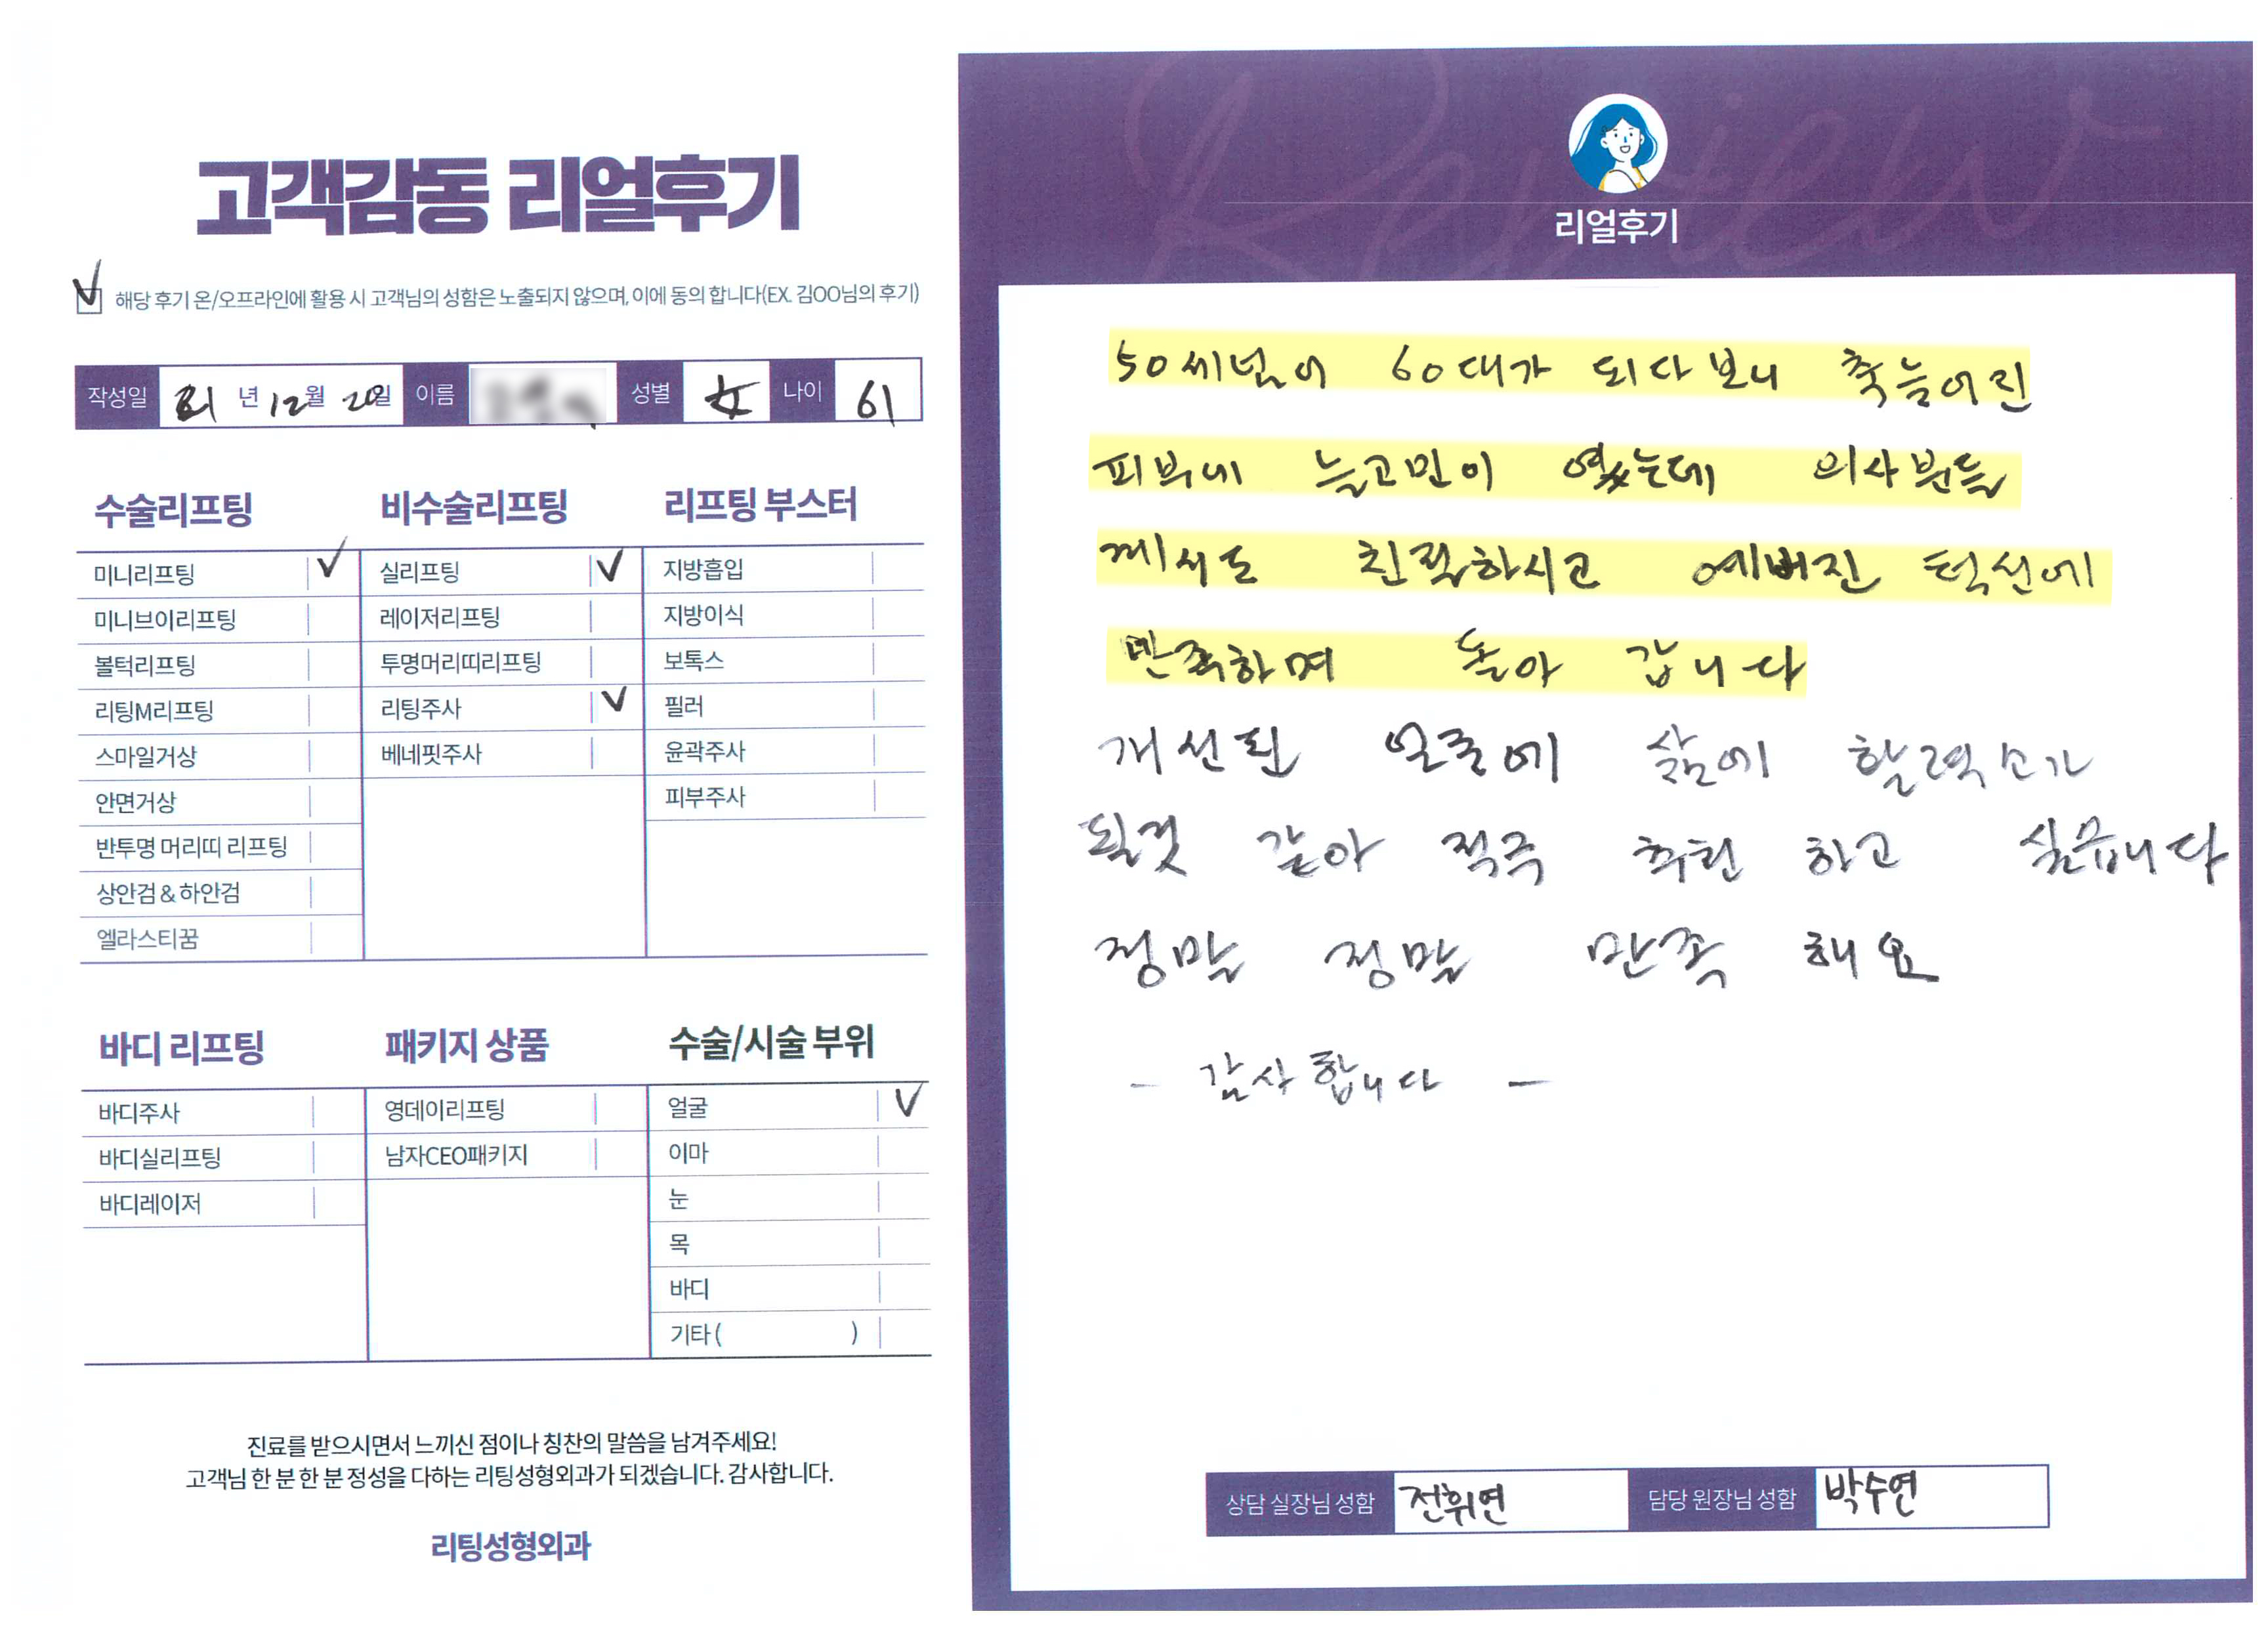 고객감동 리얼후기
해당 후기 온/오프라인에 활용 시 고객님의 성함은 노출되지 않으며, 이에 동의 합니다(EX. 김OO님의 후기)
작성일 21년 12월 20일 이름 성별 女 나이 61
수술리프팅 비수술리프팅 리프팅 부스터
미니리프팅 실리프팅 지방흡입
미니브이리프팅 레이저리프팅 지방이식
볼턱리프팅 투명머리띠리프팅 보톡스
리팅M리프팅 리팅주사 필러
스마일거상 베네핏주사 윤곽주사
안면거상 피부주사
반투명 머리띠 리프팅
상안검 & 하안검
엘라스티꿈
바디 리프팅 패키지 상품 수술/시술 부위
바디주사 영데이리프팅 얼굴
바디실리프팅 남자CEO패키지 이마
바디레이저 눈
목
바디
기타 ( )
진료를 받으시면서 느끼신 점이나 칭찬의 말씀을 남겨주세요!
고객님 한 분 한 분 정성을 다하는 리팅성형외과가 되겠습니다. 감사합니다.
리팅성형외과
Review
리얼후기
50세넘어 60대가 되다보니 축늘어진
피부에 늘고민이 였는데 의사분들
께서도 친절하시고 예버진 턱선에
만족하며 돌아 갑니다
개선된 얼굴에 삶에 활력소가
될것 같아 적극 추천 하고 싶습니다
정말 정말 만족 해요
- 감사합니다 -
상담 실장님 성함 전휘연 담당 원장님 성함 박수연